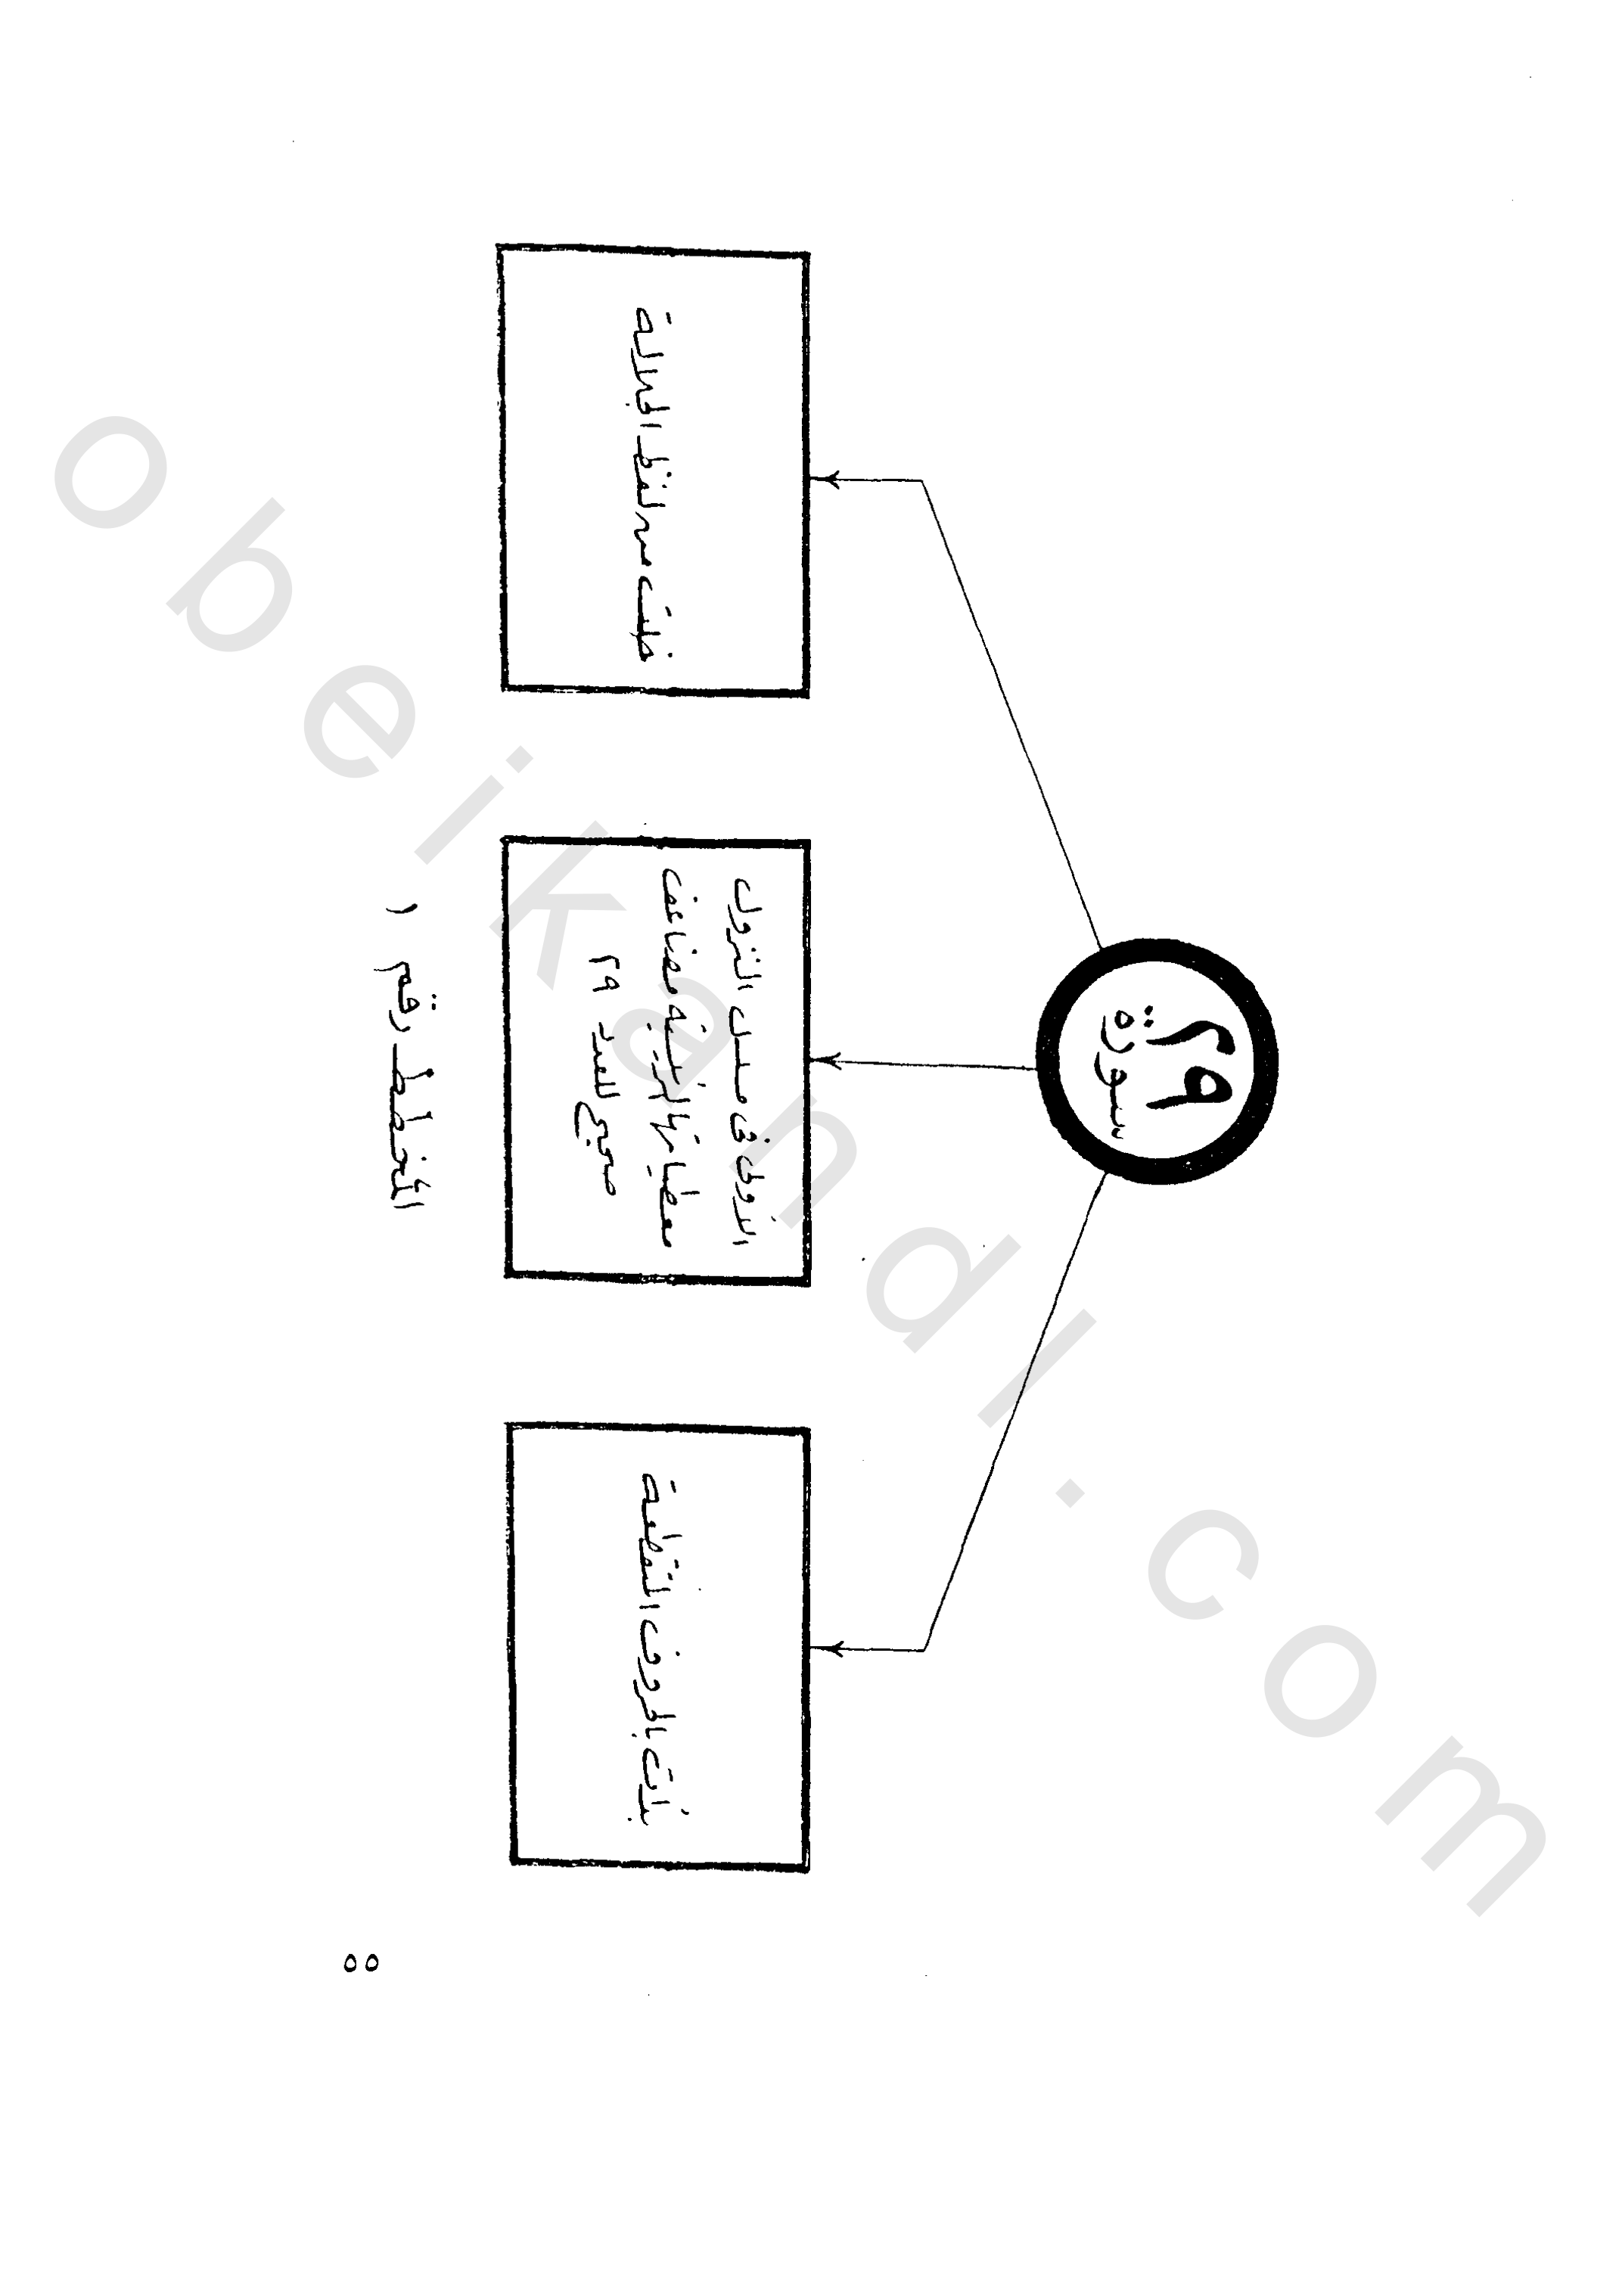 ٢٩
سورة
بدأت بالحروف المتقطعة
الأولى في تسلسل النزول
معطياتها الرئيسية مضاعف
صحيح للعدد ٢٩
خلت من لفظ الجلالة
المخطط رقم ١
٥٥
obeikandl.com